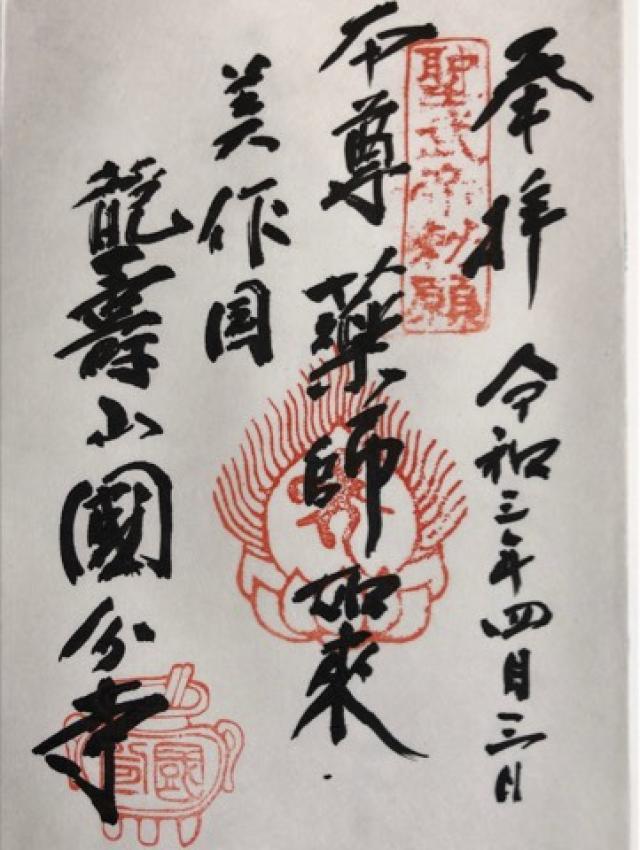 奉拝 令和三年四月三日
聖武帝勅願
本尊 藥師如來
美作国
龍壽山國分寺